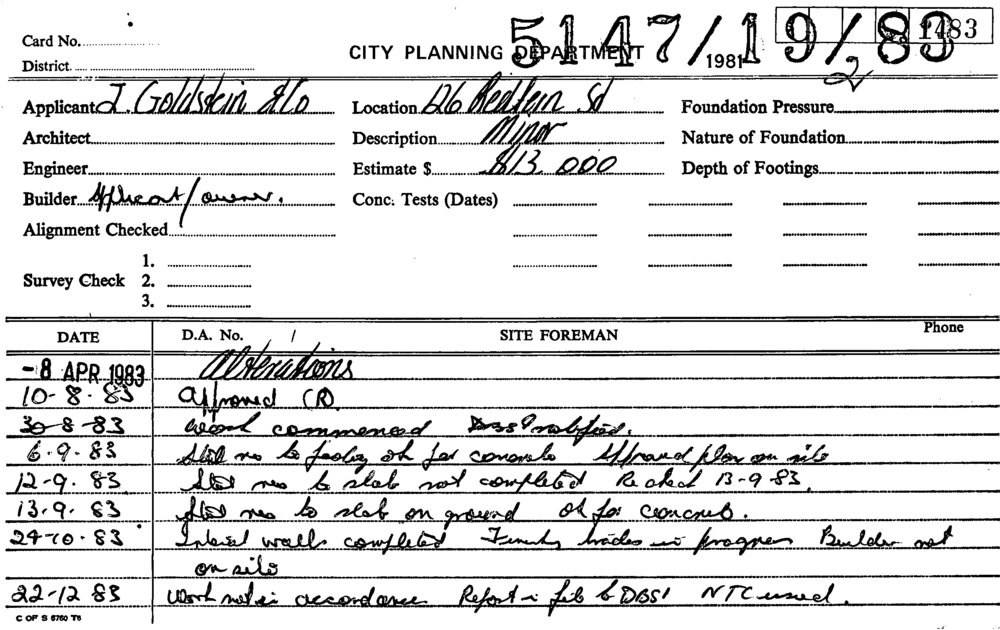 5147/19/83
1483
Card No.
CITY PLANNING DEPARTMENT
1981
2
District
Applicant J. Goldstein & Co
Location 126 Redfern St
Foundation Pressure
Architect
Description Minor
Nature of Foundation
Engineer
Estimate $ $13,000
Depth of Footings
Builder Applicant/owner.
Conc. Tests (Dates)
Alignment Checked
1.
Survey Check 2.
3.
DATE D.A. No. / SITE FOREMAN Phone
-8 APR 1983 Alterations
10-8-83 Approved
30-8-83 Work commenced notified.
6.9.83 Steel to footing ok for concrete Approved plan on site
12-9.83 Steel to slab not completed 13-9-83.
13.9.83 Steel to slab on ground ok for concrete.
24-10.83 walls completed trades in progress Builder not
on site
22-12 83 Work not in accordance Report in file to DBS NTC issued.
C OF S 6760 T6